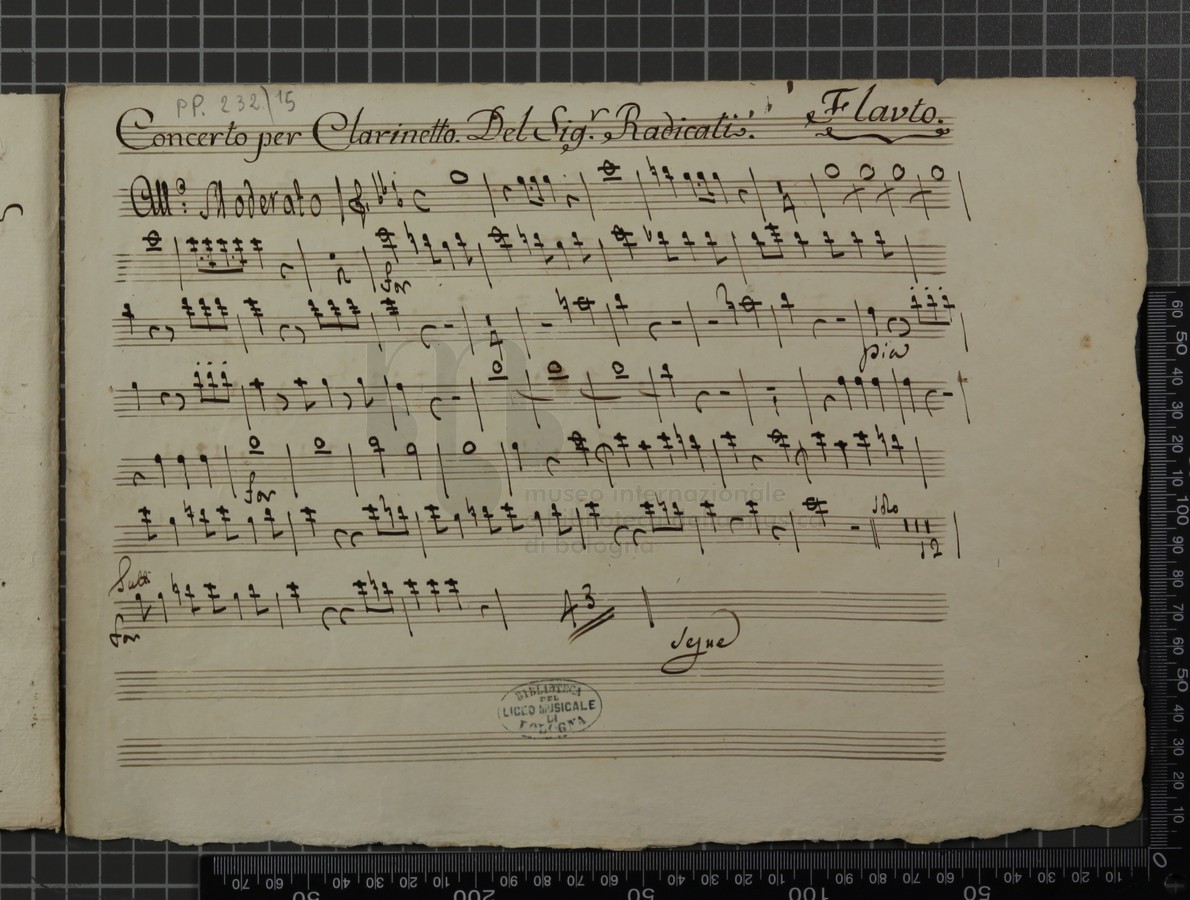 PP. 232.\15
Concerto per Clarinetto. Del Sig.r Radicati. Flauto.
All.o Moderato
pia
museo internazionale
di bologna
solo
12
Segue
BIBLIOTECA
DEL
LICEO MUSICALE
DI
BOLOGNA
60 50 40 30 20 10 100 90 80 70 60 50 40 30 20 10 0
70 60 50 40 30 20 10 200 90 80 70 60 50 40 30 20 10 100 90 80 70 60 50 40 30 20 10